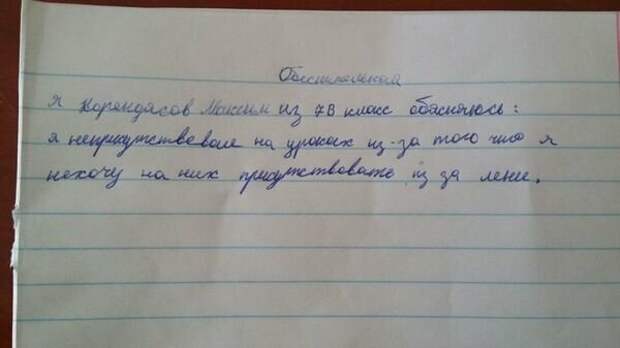 Обеснительная
Я Корендясов Максим из 7В класс обясняюсь:
я неприсутствовал на уроках из-за того что я
нехочу на них присутствовать из за лени.